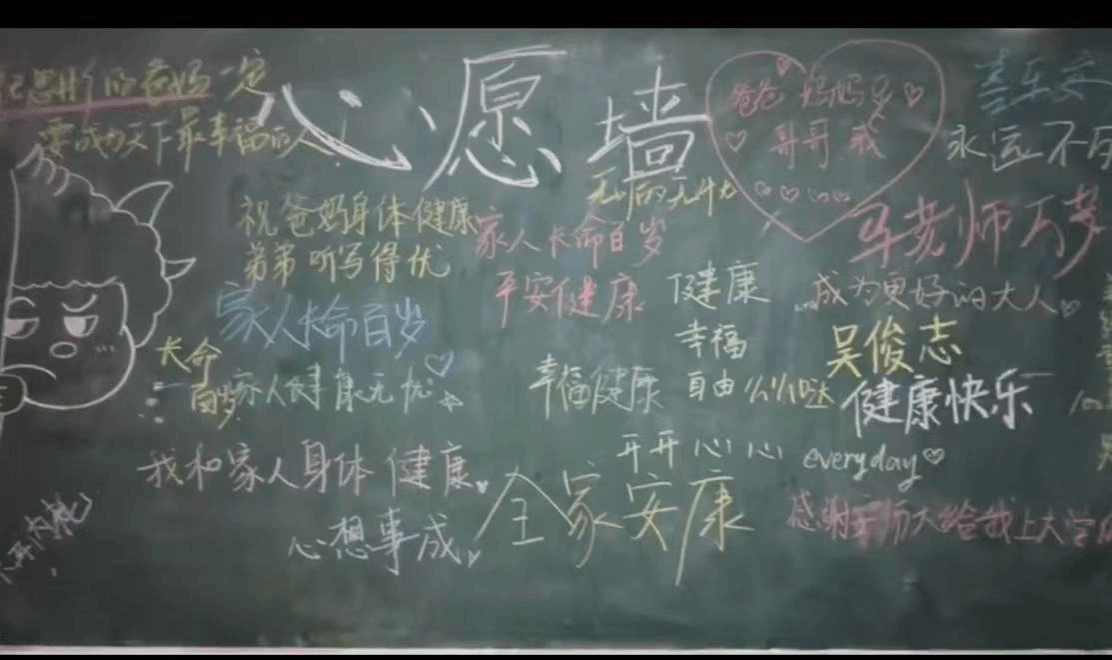 心愿墙
爸一定
要成为天下最幸福的人
爸爸 妈妈
哥哥 我
喜乐安
永远不
祝爸妈身体健康
弟弟听写得优
家人长命百岁
平安健康
老师万岁
健康
成为更好的大人
幸福
吴俊志
家人长命百岁
长命
百岁
家人健康无忧
幸福健康
自由 么么哒
健康快乐
我和家人身体健康
开开心心
everyday
心想事成
全家安康
感谢 师大给我上大学